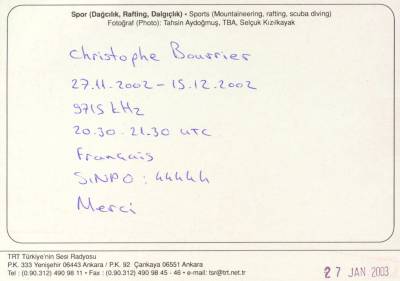 Spor (Dağcılık, Rafting, Dalgıçlık) • Sports (Mountaineering, rafting, scuba diving)
Fotoğraf (Photo): Tahsin Aydoğmuş, TBA, Selçuk Kızılkayak
Christophe Bourrier
27.11.2002 - 15.12.2002
9715 kHz
20.30-21.30 UTC
Français
SINPO : 44444
Merci
TRT Türkiye'nin Sesi Radyosu
P.K. 333 Yenişehir 06443 Ankara / P.K. 92 Çankaya 06551 Ankara
Tel : (0.90.312) 490 98 11 • Fax : (0.90.312) 490 98 45 - 46 • e-mail: tsr@trt.net.tr
27 JAN 2003